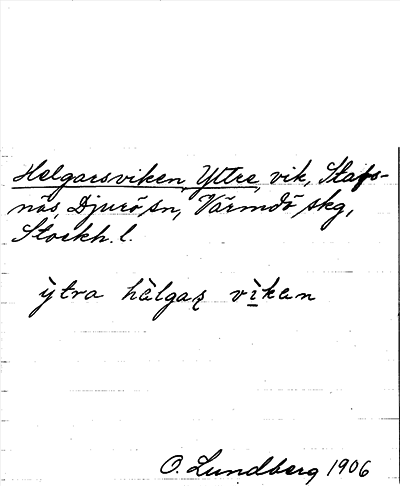 Helgarsviken, Yttre, vik, Stafs-
näs, Djurö sn, Värmdö skg,
Stockh. l.
ỳtra hàlgaʂ vìkan
O. Lundberg 1906